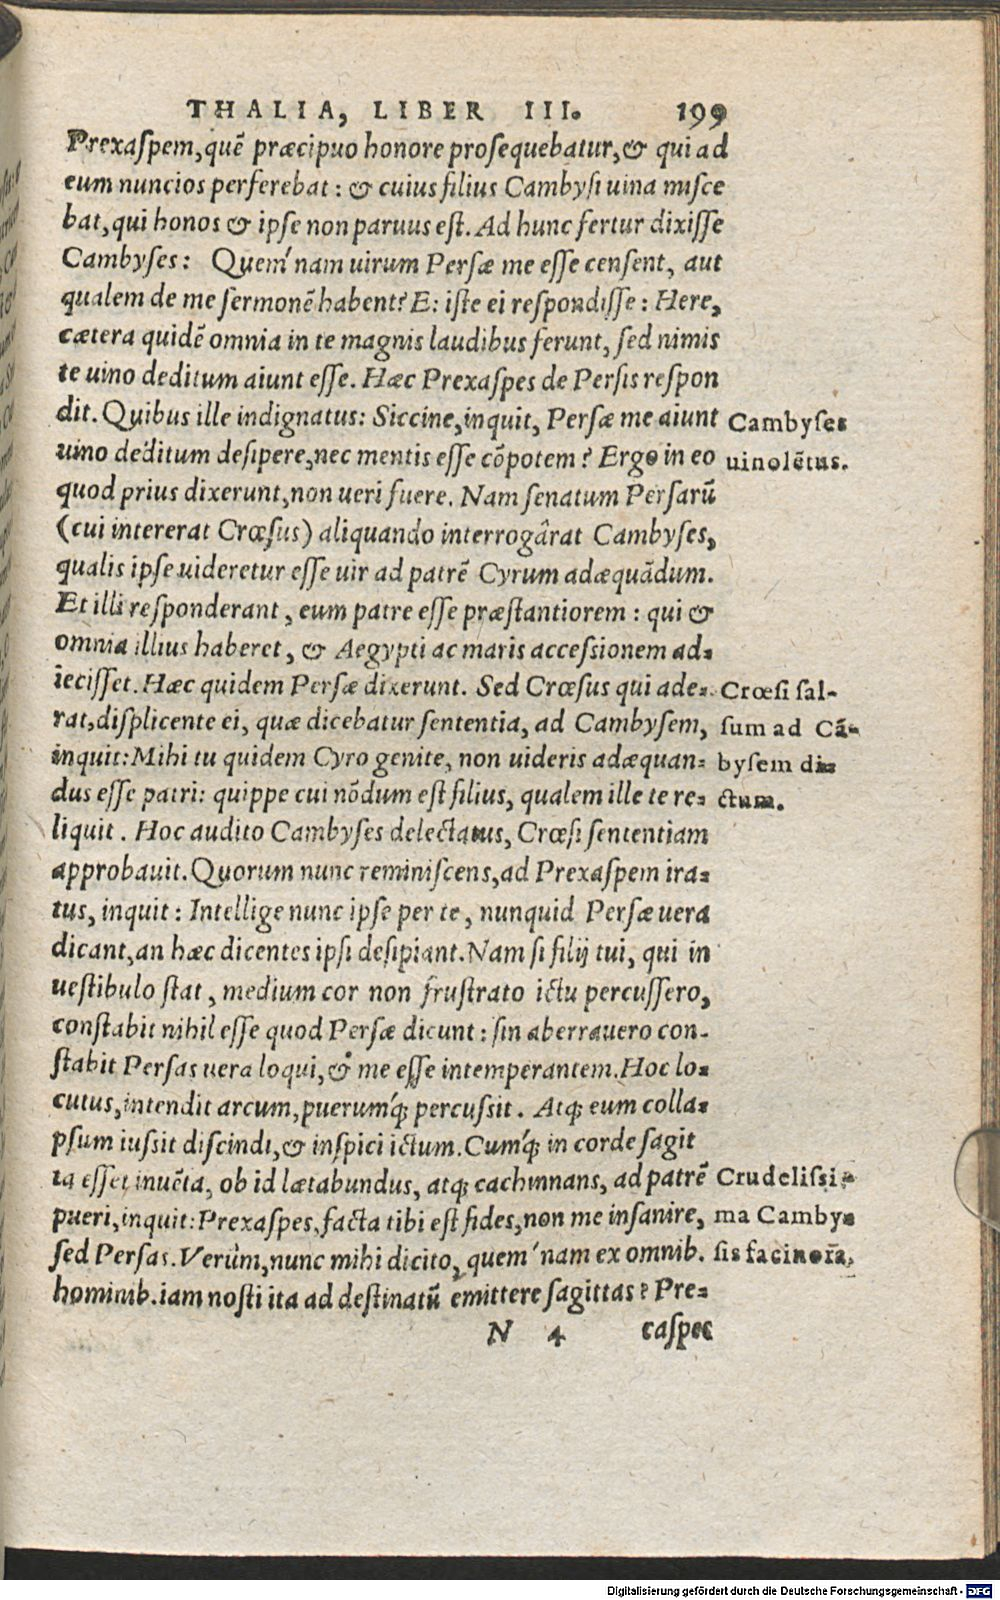 THALIA, LIBER III. 199
Prexaſpem, quē præcipuo honore proſequebatur, & qui ad
eum nuncios perferebat: & cuius filius Cambyſi uina miſce
bat, qui honos & ipſe non paruus eſt. Ad hunc fertur dixiſſe
Cambyſes: Quem´nam uirum Perſæ me eſſe cenſent, aut
qualem de me ſermonē habent? E: iſte ei reſpondiſſe: Here,
cætera quidē omnia in te magnis laudibus ferunt, ſed nimis
te uino deditum aiunt eſſe. Hæc Prexaſpes de Perſis reſpon
dit. Quibus ille indignatus: Siccine, inquit, Perſæ me aiunt
uino deditum deſipere, nec mentis eſſe cōpotem? Ergo in eo
quod prius dixerunt, non ueri fuere. Nam ſenatum Perſarū
(cui intererat Crœſus) aliquando interrogârat Cambyſes,
qualis ipſe uideretur eſſe uir ad patrē Cyrum adæquādum.
Et illi reſponderant, eum patre eſſe præſtantiorem: qui &
omnia illius haberet, & Aegypti ac maris acceſsionem ad-
ieciſſet. Hæc quidem Perſæ dixerunt. Sed Crœſus qui ade-
rat, diſplicente ei, quæ dicebatur ſententia, ad Cambyſem,
inquit: Mihi tu quidem Cyro genite, non uideris adæquan-
dus eſſe patri: quippe cui nōdum eſt filius, qualem ille te re-
liquit. Hoc audito Cambyſes delectatus, Crœſi ſententiam
approbauit. Quorum nunc reminiſcens, ad Prexaſpem ira-
tus, inquit: Intellige nunc ipſe per te, nunquid Perſæ uera
dicant, an hæc dicentes ipſi deſipiant. Nam ſi filij tui, qui in
ueſtibulo ſtat, medium cor non fruſtrato ictu percuſſero,
conſtabit nihil eſſe quod Perſæ dicunt: ſin aberrauero con-
ſtabit Perſas uera loqui, & me eſſe intemperantem. Hoc lo-
cutus, intendit arcum, puerum´q; percuſsit. Atq; eum colla-
pſum iuſsit diſcindi, & inſpici ictum. Cum´q; in corde ſagit
ta eſſet inuēta, ob id lætabundus, atq; cachinnans, ad patrē
pueri, inquit: Prexaſpes, facta tibi eſt fides, non me inſanire,
ſed Perſas. Verùm, nunc mihi dicito, quem´nam ex omnib.
hominib. iam noſti ita ad deſtinatū emittere ſagittas? Pre-
N 4 caſpes
Cambyſes
uinolētus.
Crœſi ſal-
ſum ad Cā-
byſem di-
ctum.
Crudeliſsi-
ma Camby-
ſis facinora.
Digitalisierung gefördert durch die Deutsche Forschungsgemeinschaft - DFG